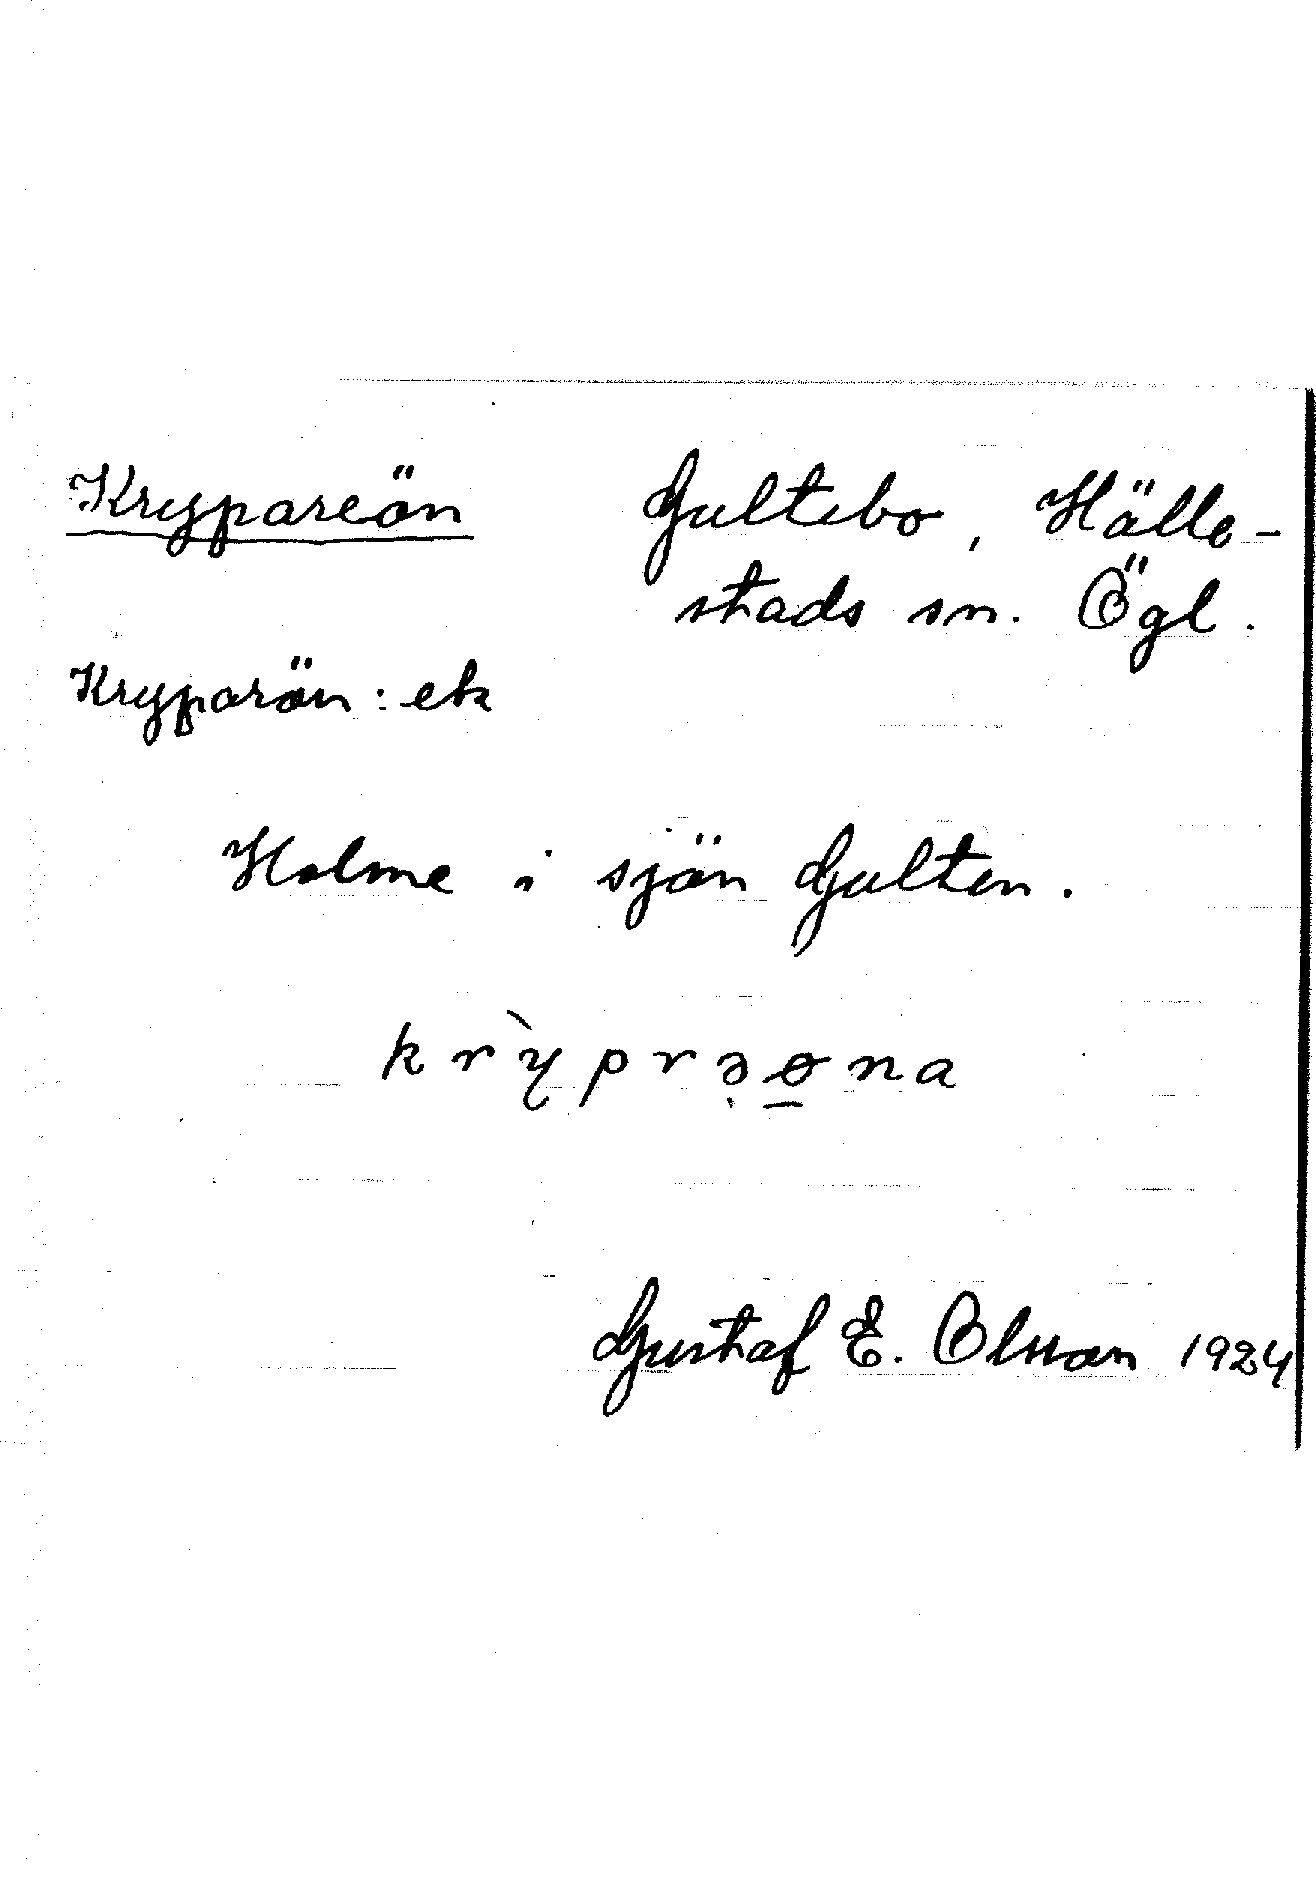 Krypareön Gultebo, Hälle-
stads sn. Ögl.
Kryparön: ek
Holme i sjön Gulten.
krỳprəøna
Gustaf E. Olsson 1924